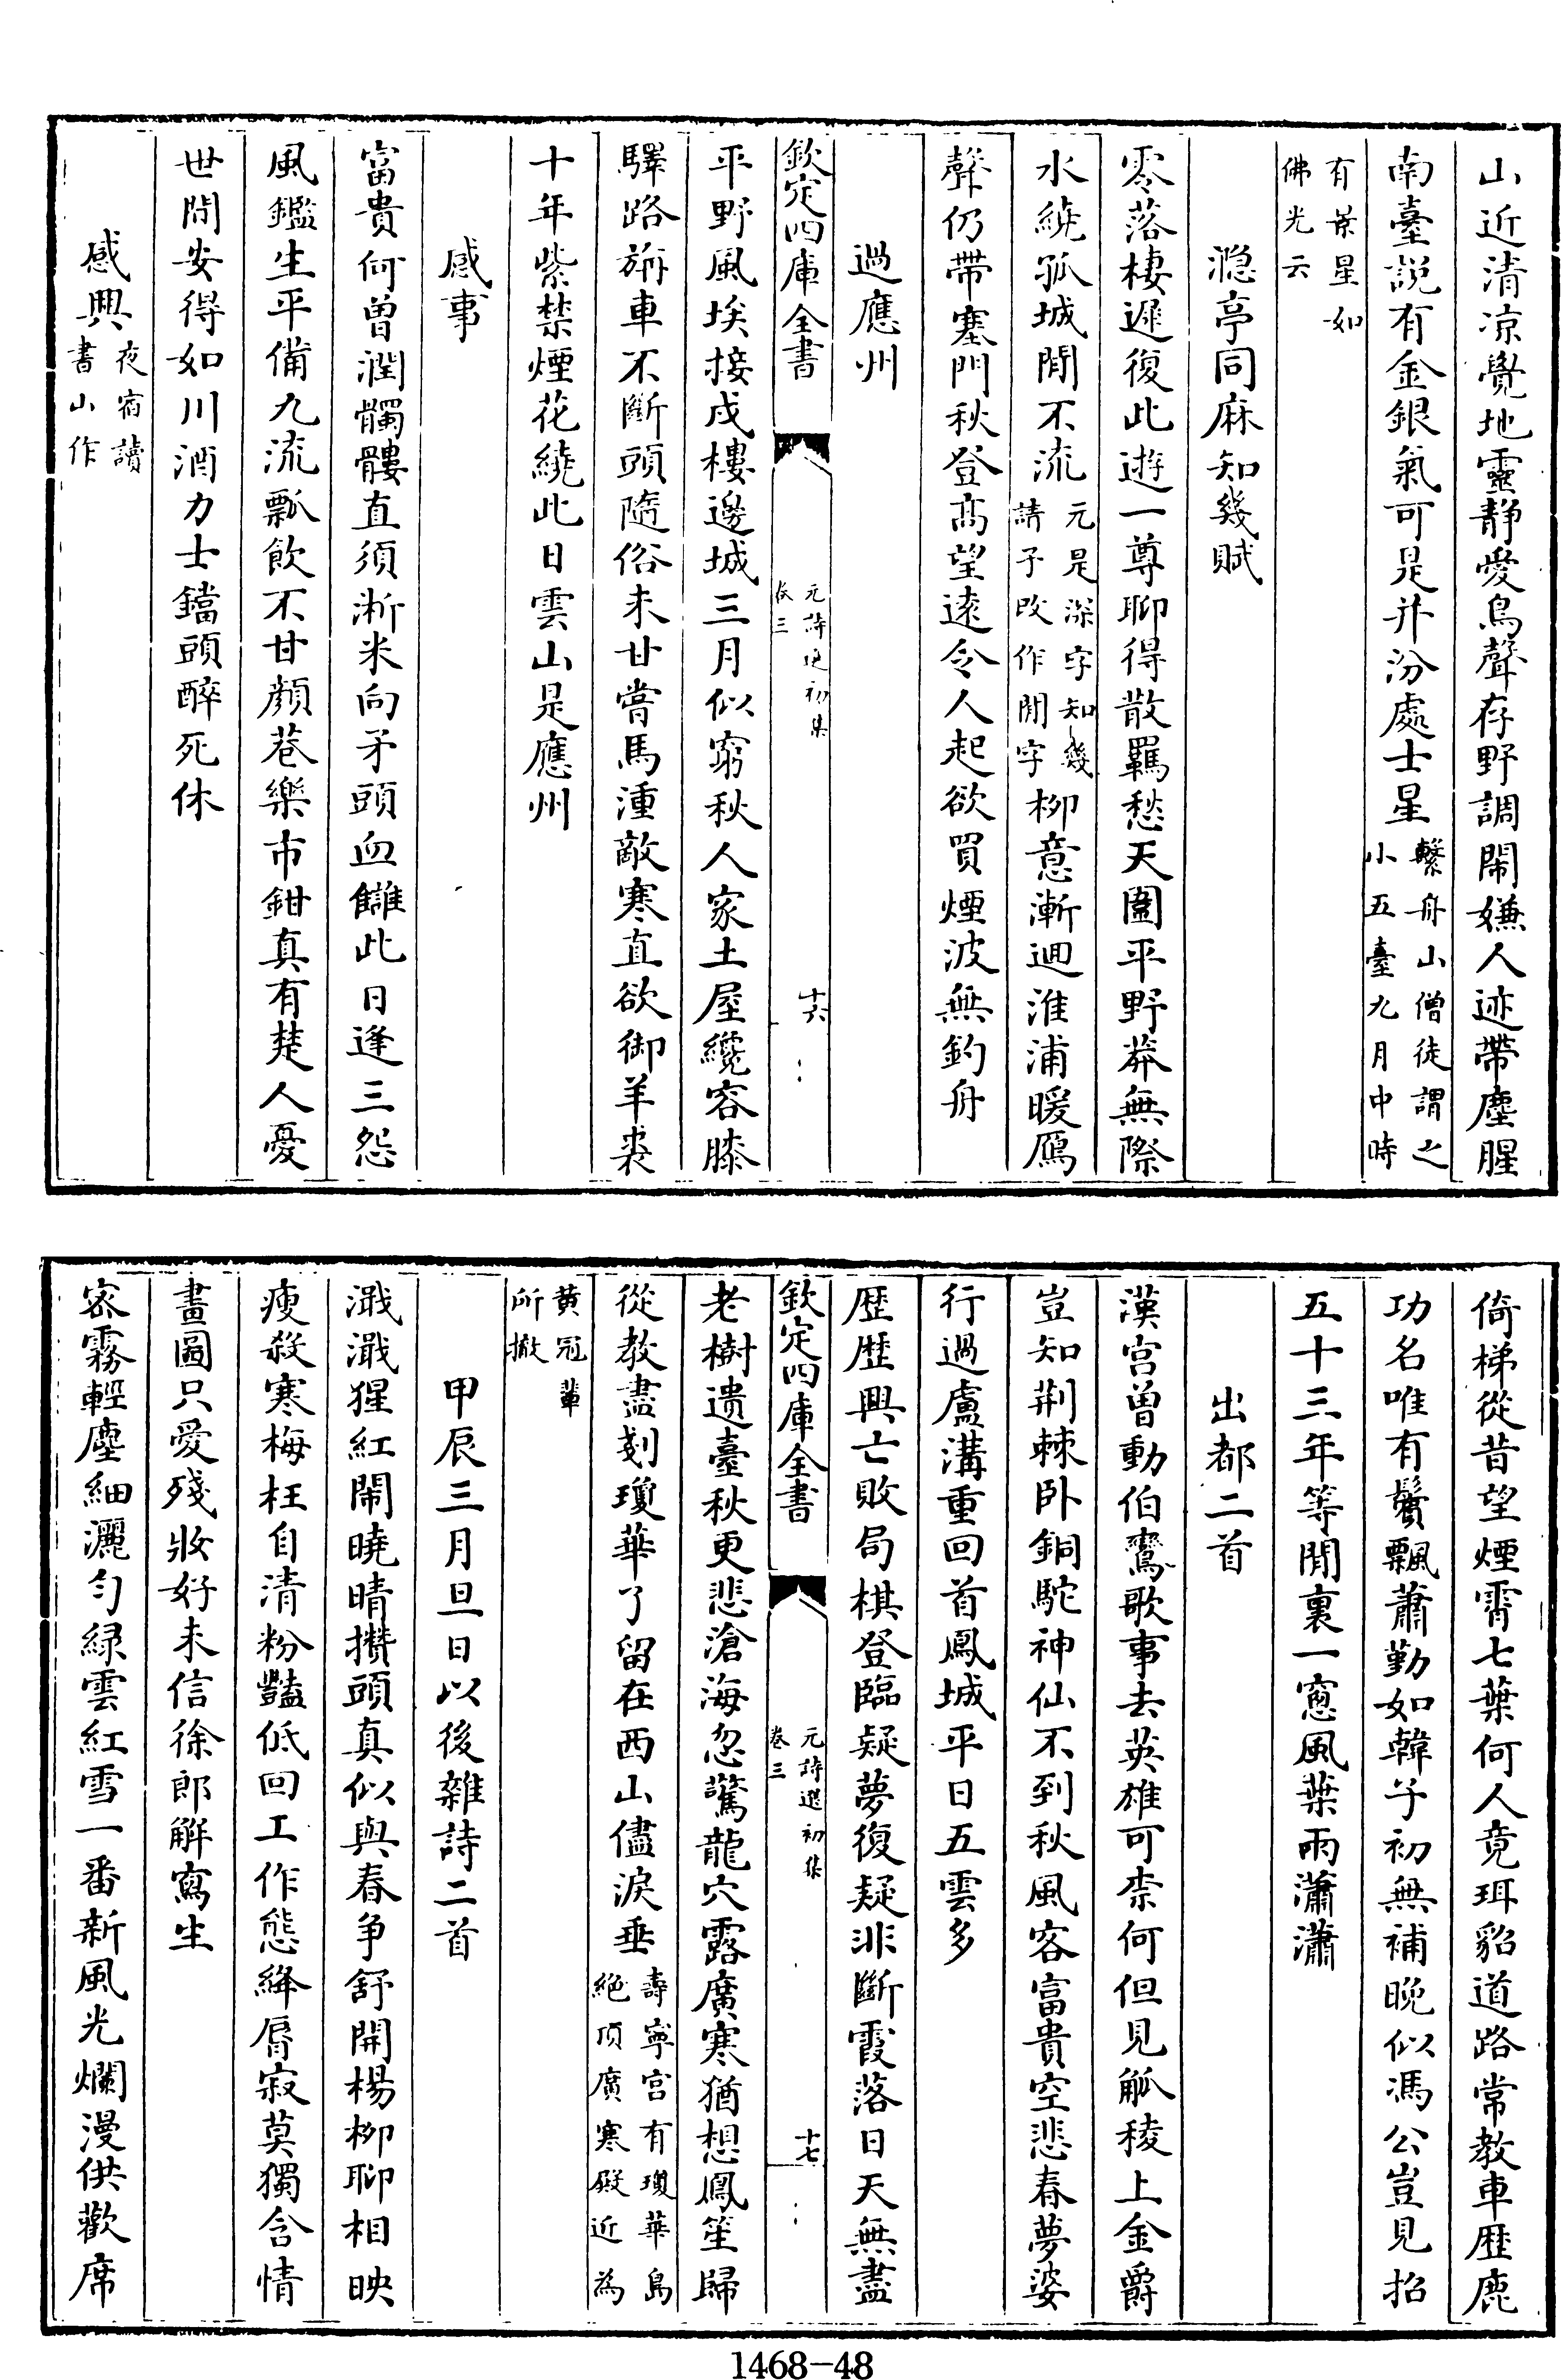 山近清凉覺地靈静愛鳥聲存野調閙嫌人迹帶塵腥
南臺説有金銀氣可是并汾處士星繫舟山僧徒謂之小五臺九月中時
有景星如佛光云
㶏亭同麻知幾賦
零落棲遲復此遊一尊聊得散羈愁天圍平野莽無際
水繞孤城閒不流元是深字知幾請予改作閒字柳意漸迴淮浦暖鴈
聲仍帶塞門秋登高望逺令人起欲買煙波無釣舟
過應州
平野風埃接戍樓邊城三月似窮秋人家土屋纔容膝
欽定四庫全書
元詩選初集
卷三
十六
驛路旃車不斷頭隨俗未甘嘗馬湩敵寒直欲御羊裘
十年紫禁煙花繞此日雲山是應州
感事
富貴何曾潤髑髏直須淅米向矛頭血讎此日逢三怨
風鑑生平備九流瓢飲不甘顔巷樂市鉗真有楚人憂
世間安得如川酒力士鐺頭醉死休
感興夜宿讀書山作
倚梯從昔望煙霄七葉何人竟珥貂道路常教車歴鹿
功名唯有鬢飄蕭勤如韓子初無補晚似馮公豈見招
五十三年等閒裏一窻風葉雨瀟瀟
出都二首
漢宫曽動伯鸞歌事去英雄可柰何但見觚稜上金爵
豈知荆棘卧銅駝神仙不到秋風客富貴空悲春夢婆
行過盧溝重回首鳳城平日五雲多
歴歴興亡敗局棋登臨疑夢復疑非斷霞落日天無盡
老樹遺臺秋更悲滄海忽驚龍穴露廣寒猶想鳳笙歸
欽定四庫全書
元詩選初集
卷三
十七
從教盡剗瓊華了留在西山儘淚垂壽寧宫有瓊華島絶頂廣寒殿近為
黄冠輩所撤
甲辰三月旦日以後雜詩二首
濈濈猩紅閙曉晴攢頭真似與春争舒開楊柳聊相映
瘦殺寒梅枉自清粉豔低回工作態絳脣寂莫獨含情
畫圖只愛殘妝好未信徐郎解寫生
宻霧輕塵細灑匀緑雲紅雪一番新風光爛漫供歡席
1468-48